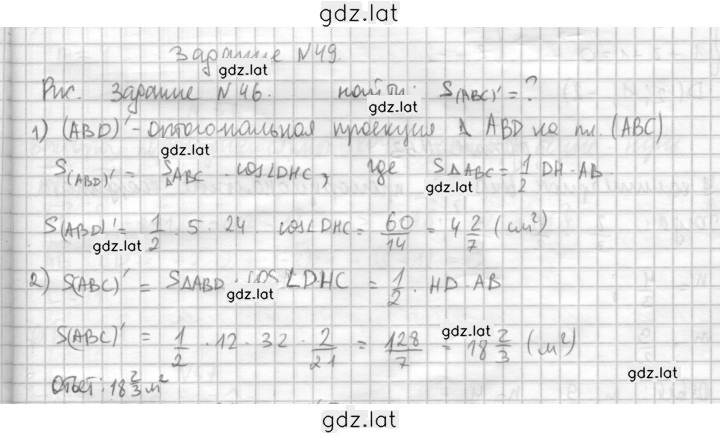 gdz.lat
Задание №49.
gdz.lat
Рис. Задание №46. найти: S(ABC)' = ?
gdz.lat
1) (ABD)' - ортогональная проекция Δ ABD на пл. (ABC)
gdz.lat
S(ABD)' = SΔABC · cos∠DHC, где SΔABC = 1/2 DH · AB
gdz.lat
S(ABD)' = 1/2 · 5 · 24 · cos∠DHC = 60/14 = 4 2/7 (см²)
gdz.lat
2) S(ABC)' = SΔABD · cos∠DHC = 1/2 · HD · AB
gdz.lat
S(ABC)' = 1/2 · 12 · 32 · 2/21 = 128/7 = 18 2/3 (м²)
gdz.lat
Ответ: 18 2/3 м²
gdz.lat
gdz.lat